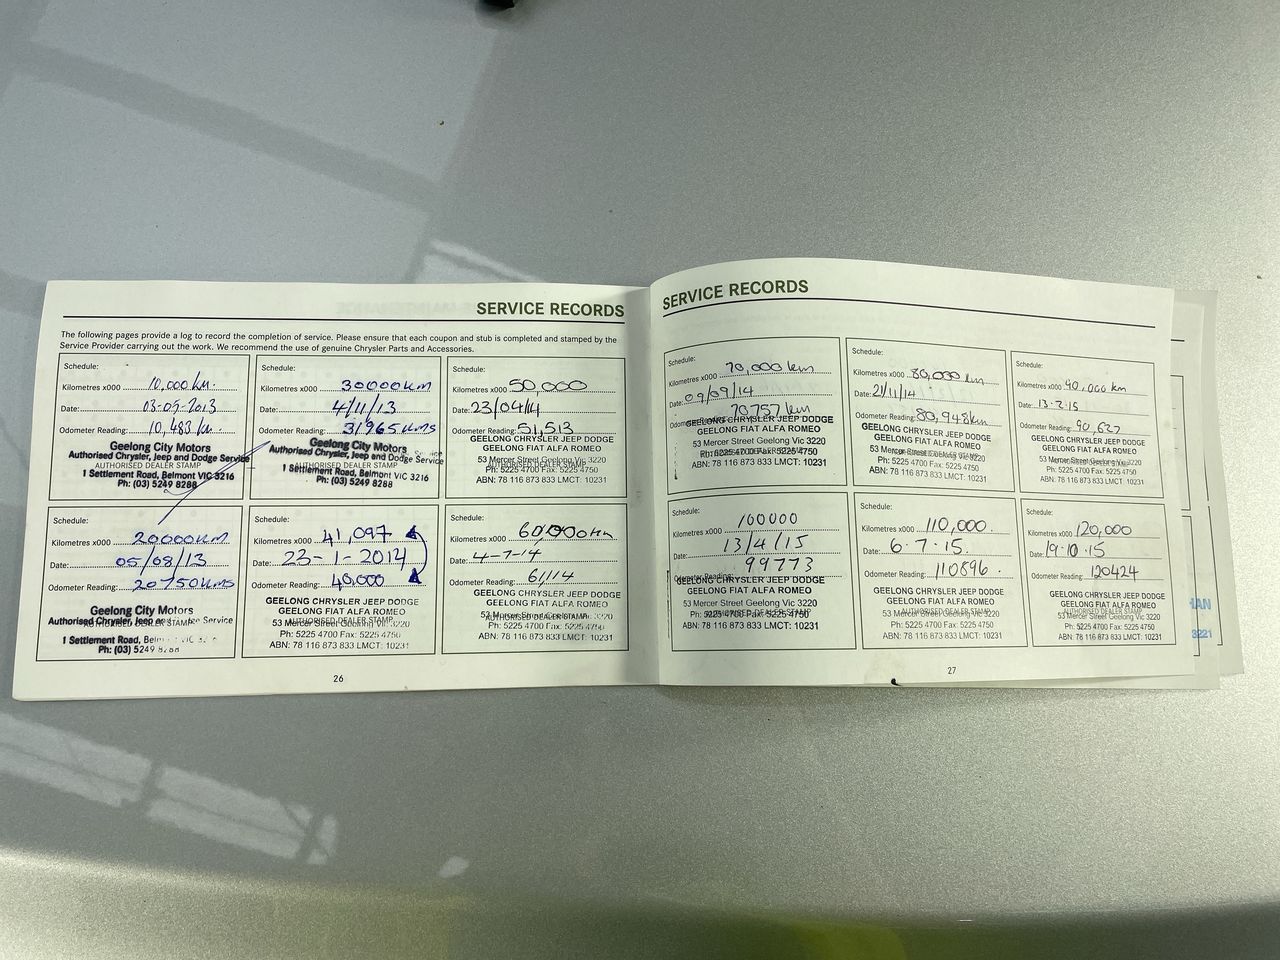 SERVICE RECORDS
The following pages provide a log to record the completion of service. Please ensure that each coupon and stub is completed and stamped by the
Service Provider carrying out the work. We recommend the use of genuine Chrysler Parts and Accessories.
Schedule:
Kilometres x000 10,000 km.
Date: 03-05-2013
Odometer Reading: 10,483 km.
Geelong City Motors
Authorised Chrysler, Jeep and Dodge Service
AUTHORISED DEALER STAMP
1 Settlement Road, Belmont VIC 3216
Ph: (03) 5249 8288
Schedule:
Kilometres x000 30000km
Date: 4/11/13
Odometer Reading: 31965kms
Geelong City Motors
Authorised Chrysler, Jeep and Dodge Service
AUTHORISED DEALER STAMP
1 Settlement Road, Belmont VIC 3216
Ph: (03) 5249 8288
Schedule:
Kilometres x000 50,000
Date: 23/04/14
Odometer Reading: 51,513
GEELONG CHRYSLER JEEP DODGE
GEELONG FIAT ALFA ROMEO
53 Mercer Street Geelong Vic 3220
AUTHORISED DEALER STAMP
Ph: 5225 4700 Fax: 5225 4750
ABN: 78 116 873 833 LMCT: 10231
Schedule:
Kilometres x000 20000km
Date: 05/08/13
Odometer Reading: 20750kms
Geelong City Motors
Authorised Chrysler, Jeep Service
AUTHORISED DEALER STAMP
1 Settlement Road,
Ph: (03) 5249 8288
Schedule:
Kilometres x000 41,097
Date: 23-1-2014
Odometer Reading: 40,000
GEELONG CHRYSLER JEEP DODGE
GEELONG FIAT ALFA ROMEO
AUTHORISED DEALER STAMP
53 Mercer Street Geelong Vic 3220
Ph: 5225 4700 Fax: 5225 4750
ABN: 78 116 873 833 LMCT: 10231
Schedule:
Kilometres x000 60,000km
Date: 4-7-14
Odometer Reading: 61114
GEELONG CHRYSLER JEEP DODGE
GEELONG FIAT ALFA ROMEO
53 Mercer Street Geelong Vic 3220
AUTHORISED DEALER STAMP
Ph: 5225 4700 Fax: 5225 4750
ABN: 78 116 873 833 LMCT: 10231
26
SERVICE RECORDS
Schedule:
Kilometres x000 70,000 km
Date: 09/09/14
Odometer Reading: 70757 km
GEELONG CHRYSLER JEEP DODGE
GEELONG FIAT ALFA ROMEO
53 Mercer Street Geelong Vic 3220
Ph: 5225 4700 Fax: 5225 4750
ABN: 78 116 873 833 LMCT: 10231
Schedule:
Kilometres x000 80,000 km
Date: 21/11/14
Odometer Reading: 80,948km
GEELONG CHRYSLER JEEP DODGE
GEELONG FIAT ALFA ROMEO
53 Mercer Street Geelong Vic 3220
Ph: 5225 4700 Fax: 5225 4750
ABN: 78 116 873 833 LMCT: 10231
Schedule:
Kilometres x000 90,000 km
Date: 13-2-15
Odometer Reading: 90,627
GEELONG CHRYSLER JEEP DODGE
GEELONG FIAT ALFA ROMEO
53 Mercer Street Geelong Vic 3220
Ph: 5225 4700 Fax: 5225 4750
ABN: 78 116 873 833 LMCT: 10231
Schedule:
Kilometres x000 100000
Date: 13/4/15
Odometer Reading: 99773
GEELONG CHRYSLER JEEP DODGE
GEELONG FIAT ALFA ROMEO
53 Mercer Street Geelong Vic 3220
AUTHORISED DEALER STAMP
Ph: 5225 4700 Fax: 5225 4750
ABN: 78 116 873 833 LMCT: 10231
Schedule:
Kilometres x000 110,000.
Date: 6.7.15.
Odometer Reading: 110896.
GEELONG CHRYSLER JEEP DODGE
GEELONG FIAT ALFA ROMEO
AUTHORISED DEALER STAMP
53 Mercer Street Geelong Vic 3220
Ph: 5225 4700 Fax: 5225 4750
ABN: 78 116 873 833 LMCT: 10231
Schedule:
Kilometres x000 120,000
Date: 19.10.15
Odometer Reading: 120424
GEELONG CHRYSLER JEEP DODGE
GEELONG FIAT ALFA ROMEO
AUTHORISED DEALER STAMP
53 Mercer Street Geelong Vic 3220
Ph: 5225 4700 Fax: 5225 4750
ABN: 78 116 873 833 LMCT: 10231
27
3221